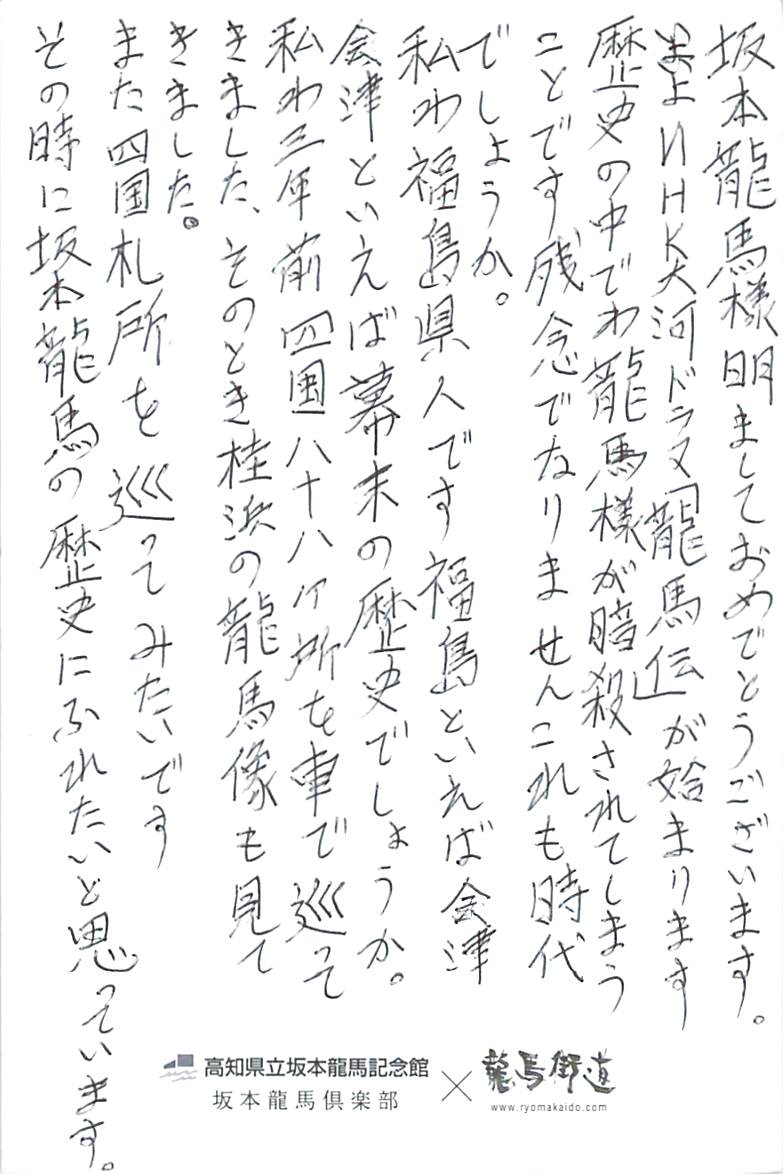 坂本龍馬様明ましておめでとうございます。
いよいよNHK大河ドラマ「龍馬伝」が始まります
歴史の中でわ龍馬様が暗殺されてしまう
ことです残念でなりませんこれも時代
でしょうか。
私わ福島県人です福島といえば会津
会津といえば幕末の歴史でしょうか。
私わ三年前四国八十八ヶ所を車で巡って
きました、そのとき桂浜の龍馬像も見て
きました。
また四国札所を巡ってみたいです
その時に坂本龍馬の歴史にふれたいと思っています。
高知県立坂本龍馬記念館
坂本龍馬倶楽部
×
龍馬街道
www.ryomakaido.com